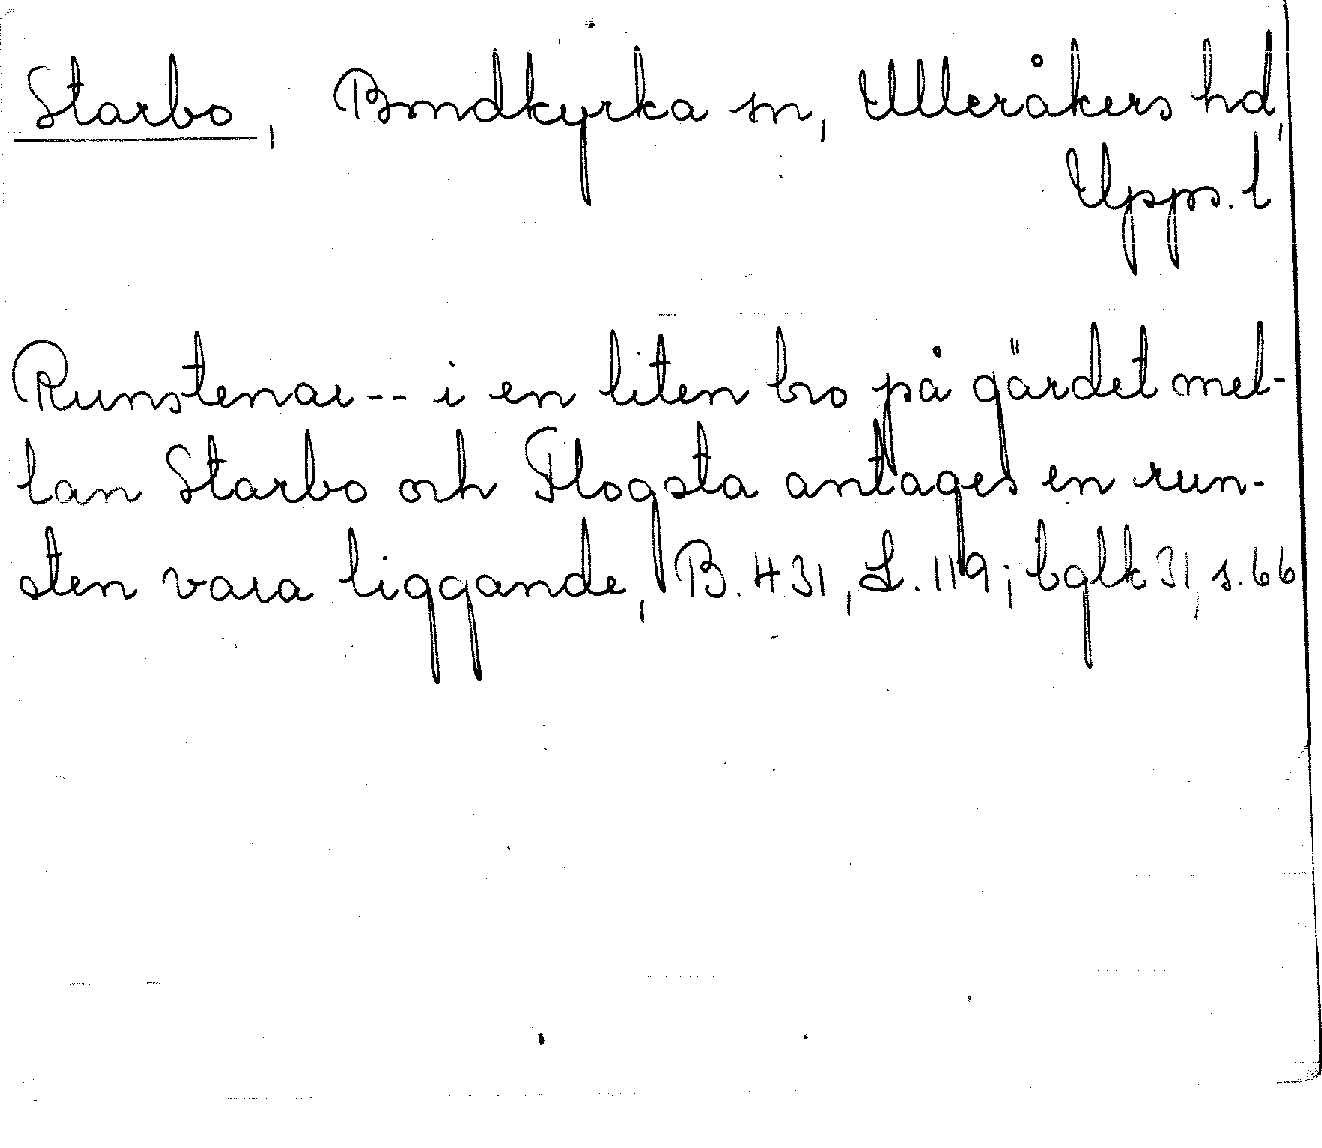 Starbo, Bondkyrka sn, Ulleråkers hd,
Upps. l
Runstenar-- i en liten bro på gärdet mel-
lan Starbo och Flogsta antages en run-
sten vara liggande, B. 431, L. 119; bqlk 31, s. 66